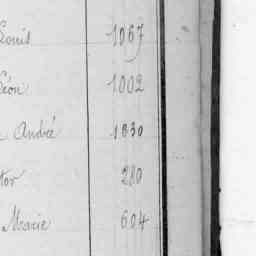 Louis 1067
Léon 1002
André 1830
280
Marie 604